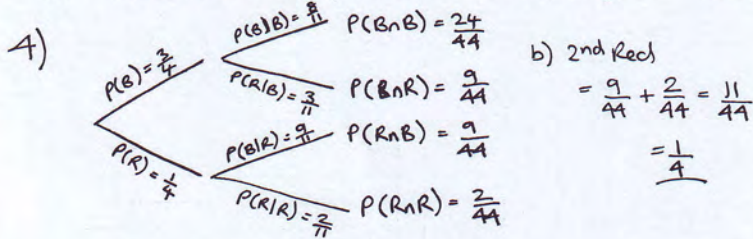 4)
P(B) = 3/4
P(R) = 1/4
P(B|B) = 8/11
P(R|B) = 3/11
P(B|R) = 9/11
P(R|R) = 2/11
P(B∩B) = 24/44
P(B∩R) = 9/44
P(R∩B) = 9/44
P(R∩R) = 2/44
b) 2nd Red
= 9/44 + 2/44 = 11/44
= 1/4